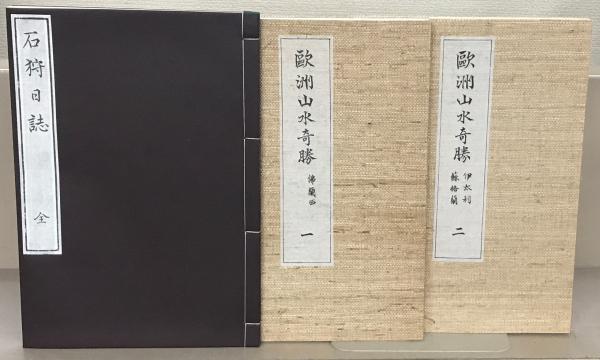 石狩日誌
全
歐洲山水奇勝
佛蘭西
一
歐洲山水奇勝
伊太利
蘇格蘭
二